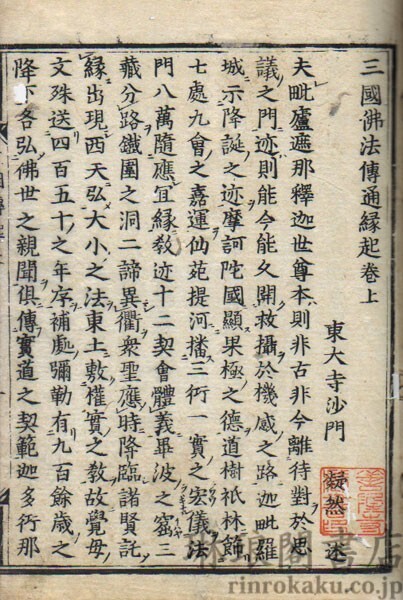 三國佛法傳通緣起卷上
東大寺沙門 凝然 述
夫毗盧遮那釋迦世尊本則非古非今離待對於思
議之門迹則能今能久開救攝於機感之路迦毗羅
城示降誕之迹摩訶陀國顯果極之德道樹祇林飾
七處九會之嘉運仙苑提河播三衍一實之宏儀法
門八萬隨應冝緣敎迹十二契會體義畢波之窟三
藏分路鐵圍之洞二諦異衢衆聖應時降臨諸賢託
緣出現西天弘大小之法東土敷權實之敎故覺母
文殊送四百五十之年序補處彌勒有九百餘歲之
降下各弘佛世之親聞俱傳實道之契範迦多衍那
琳琅閣書店
rinrokaku.co.jp